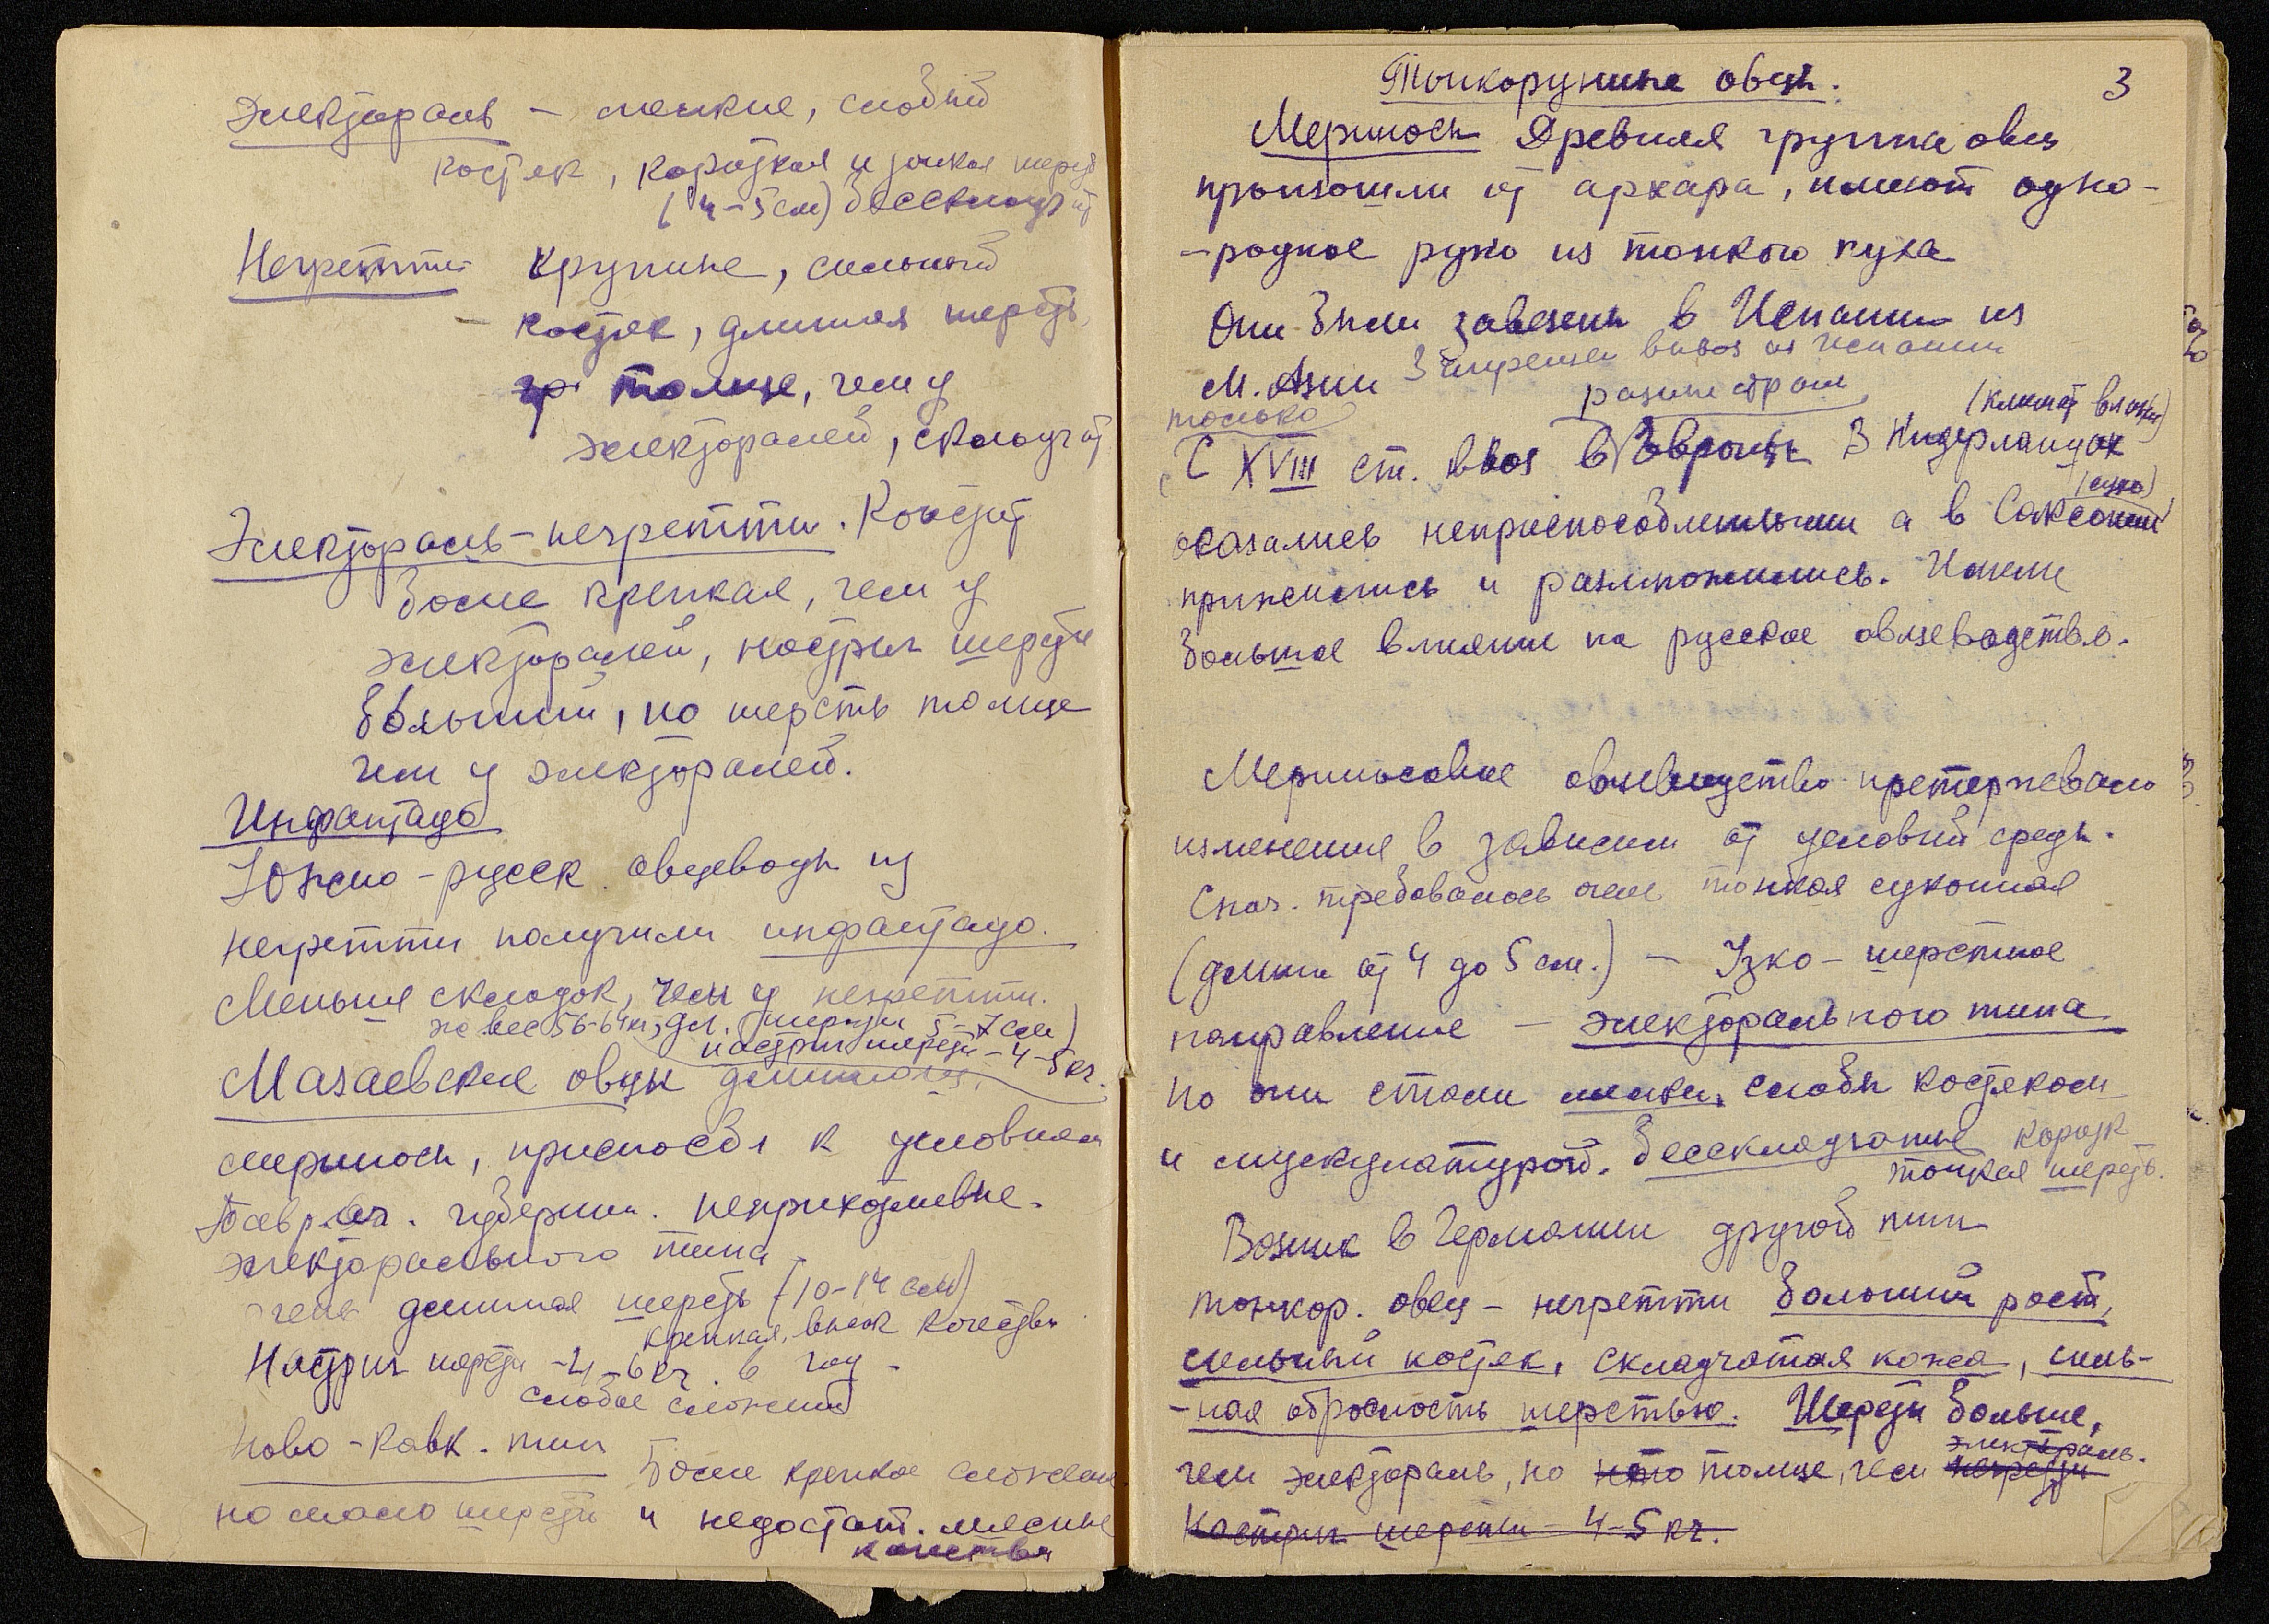 Электораль – мелкие, слабый
костяк, короткая и тонкая шерсть
(4–5 см) бесскладчат
Негретти крупные, сильный
– костяк, длинная шерсть,
толще, чем у
электоралей, складчат
Электораль-негретти. Констит
более крепкая, чем у
электоралей, настриг шерсти
больший, но шерсть толще
чем у электоралей.
Инфантадо
Южно-русск. овцеводы из
негретти получили инфантадо.
Меньше складок, чем у негретти.
ж вес 56-64 кг, дл. шерсти 5–7 см)
настриг шерсти – 4–5 кг.
Мазаевские овцы
мериносы, приспособл к условиям
Таврич. губернии. неприхотливые.
электорального типа
длинная шерсть (10–14 см)
крепкая, высок качества
Настриг шерсти – 4–6 кг. в год –
слабое сложение
Ново-кавк. тип
Более крепкое сложение
но мало шерсти и недостат. мясные
качества
3
Тонкорунные овцы.
Мериносы Древняя группа овец
произошли от архара, имеют одно-
-родное руно из тонкого пуха
Они были завезены в Испанию из
М. Азии Запрещен вывоз из Испании
разные страны
(климат влажн)
только
С XVIII ст. ввоз в Европы В Нидерландах
(сухо)
оказались неприспособленными а в Саксонии
прижились и размножились. Имели
большое влияние на русское овцеводство.
Мериносовое овцеводство претерпевало
изменения в зависим от условий среды.
Снач. требовалась тонкая суконная
(длина от 4 до 5 см.) – Узко-шерстное
направление – электорального типа
но они стали мелки, слабы костяком
и мускулатурой. Бесскладчатые коротк
тонкая шерсть.
Возник в Германии другой тип
тонкор. овец – негретти больший рост,
сильный костяк, складчатая кожа, силь-
-ная оброслость шерстью. Шерсти больше,
электораль.
чем электораль, но толще, чем негретти
Настриг шерсти – 4–5 кг.